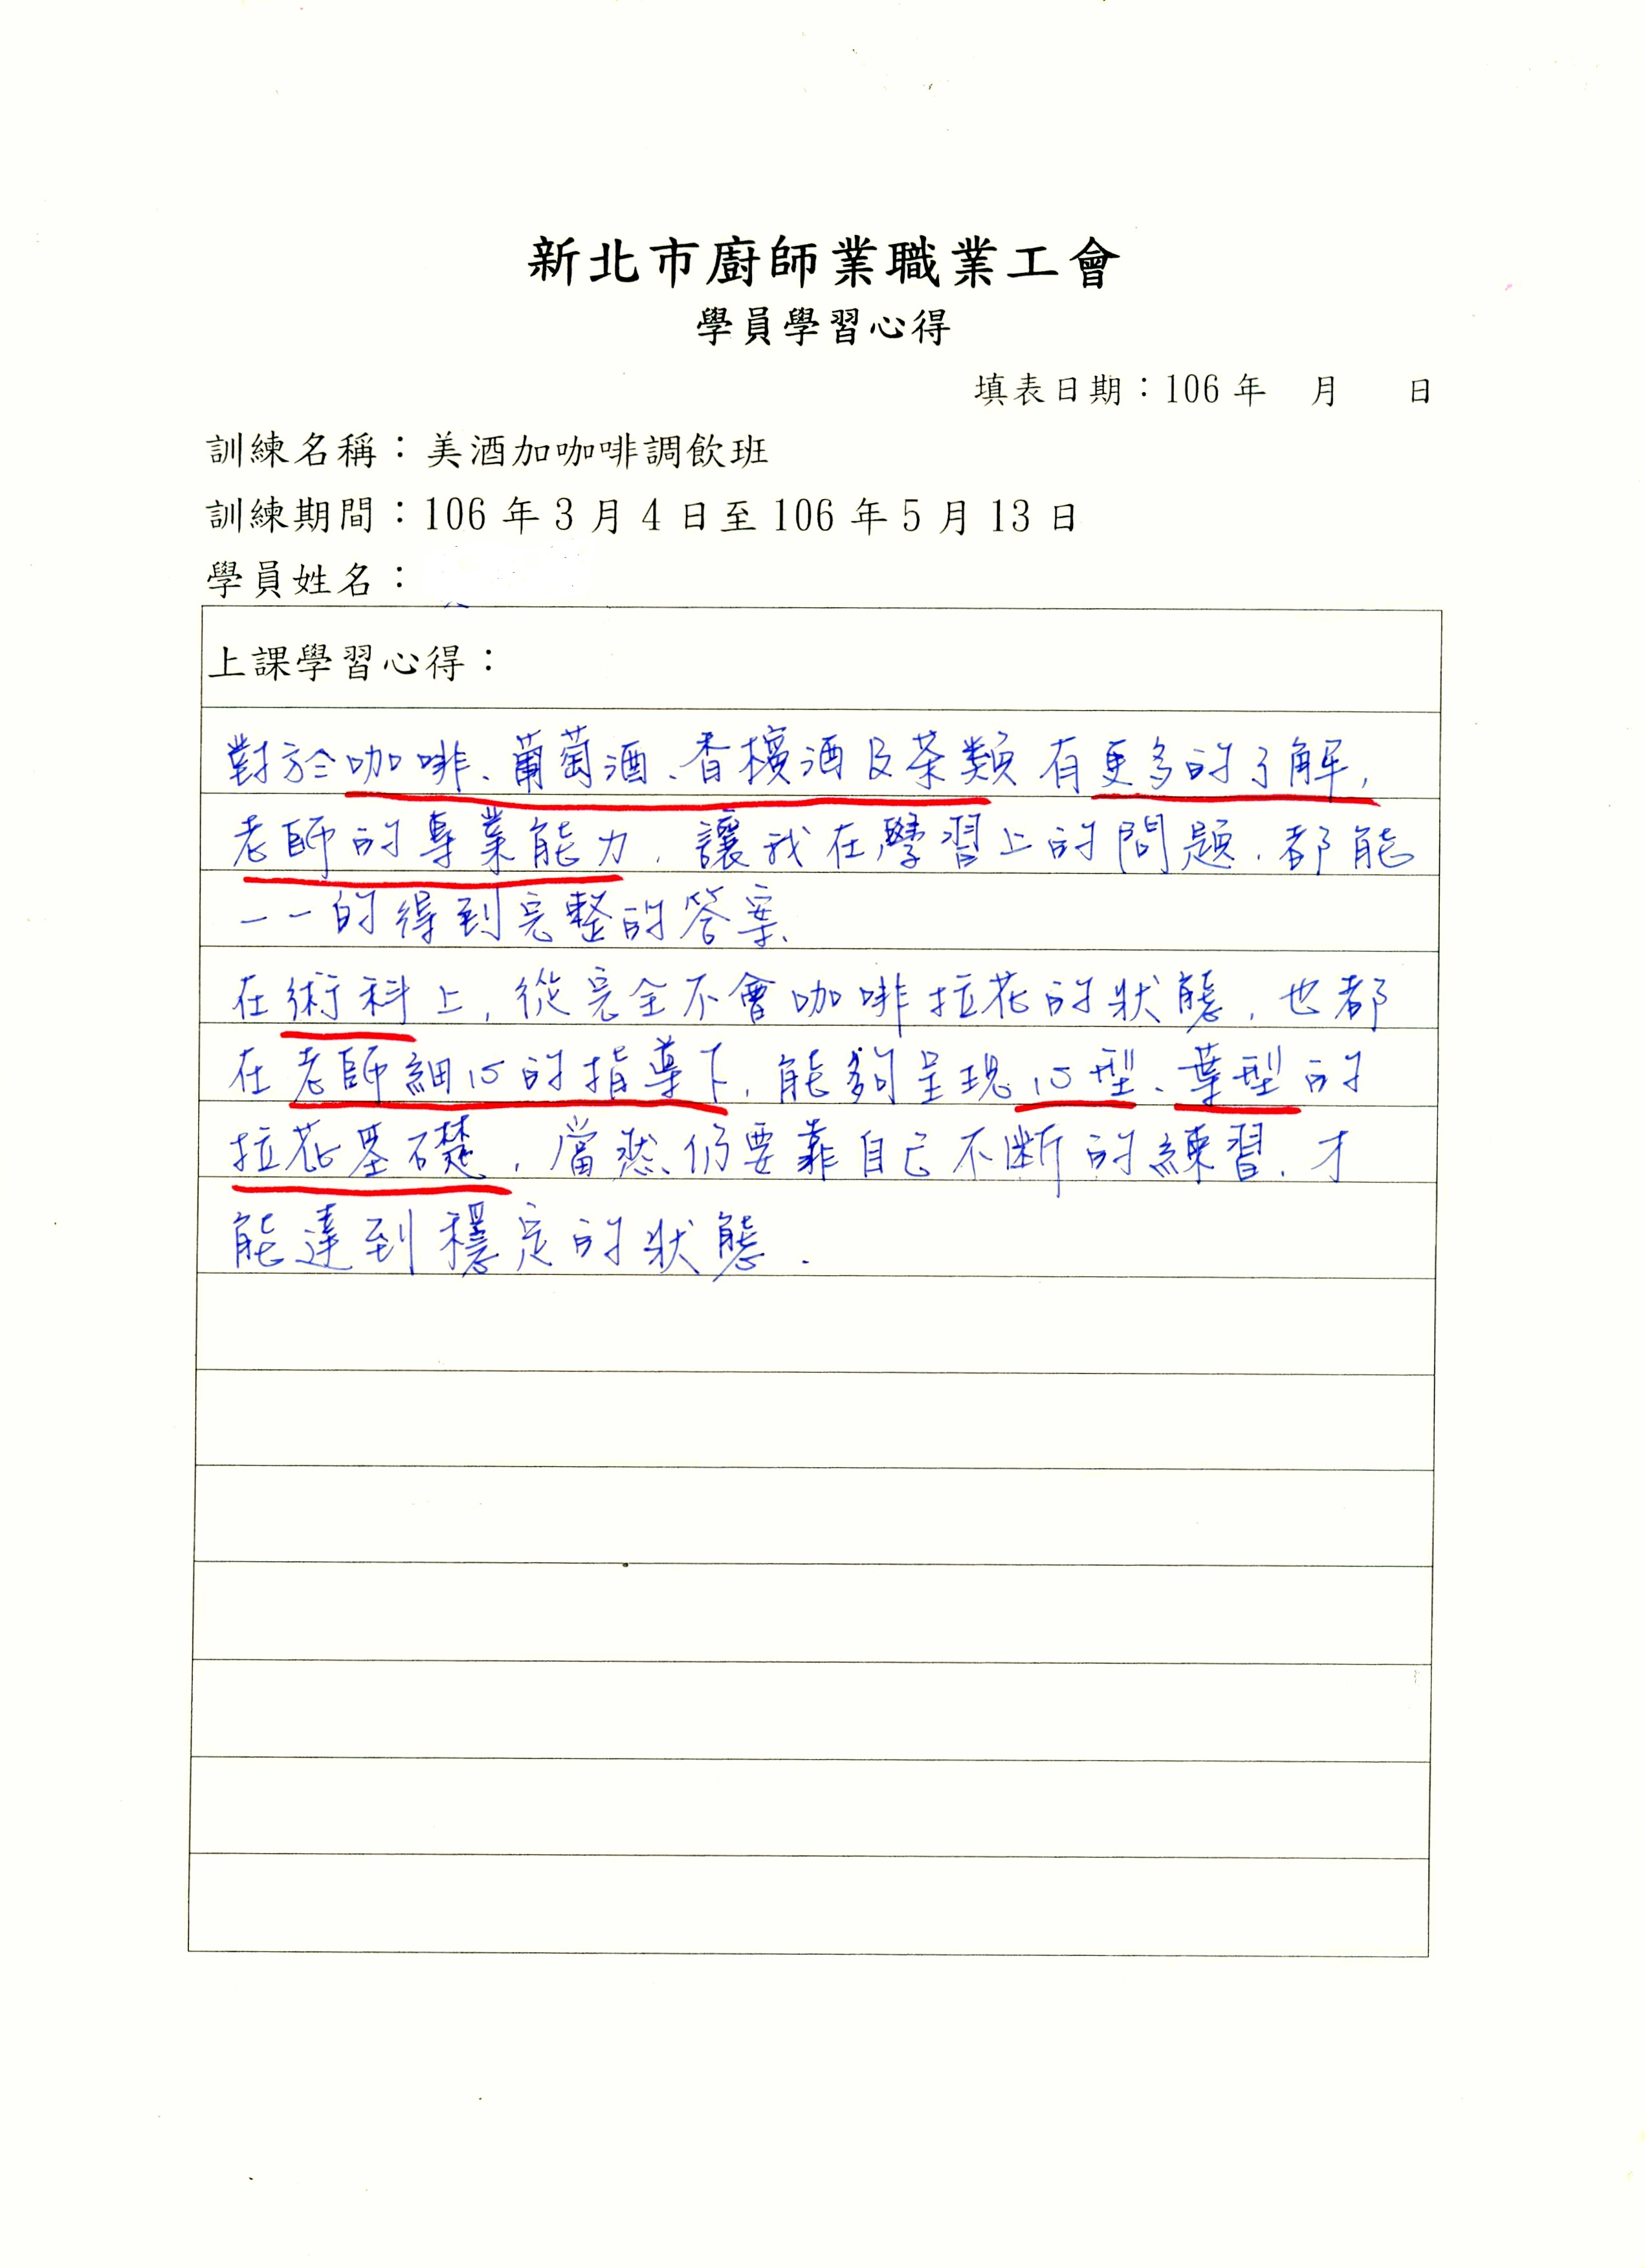 新北市廚師業職業工會
學員學習心得
填表日期：106 年 月 日
訓練名稱：美酒加咖啡調飲班
訓練期間：106 年 3 月 4 日至 106 年 5 月 13 日
學員姓名：
上課學習心得：
對於咖啡、葡萄酒、香檳酒及茶類有更多的了解，
老師的專業能力，讓我在學習上的問題，都能
一一的得到完整的答案、
在術科上，從完全不會咖啡拉花的狀態，也都
在老師細心的指導下，能夠呈現心型、葉型的
拉花基礎，當然仍要靠自己不斷的練習，才
能達到穩定的狀態．